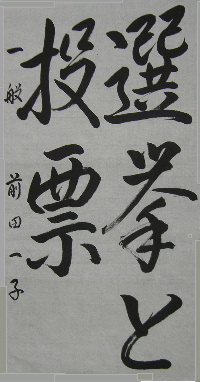 選挙と
投票
一般 前田一子